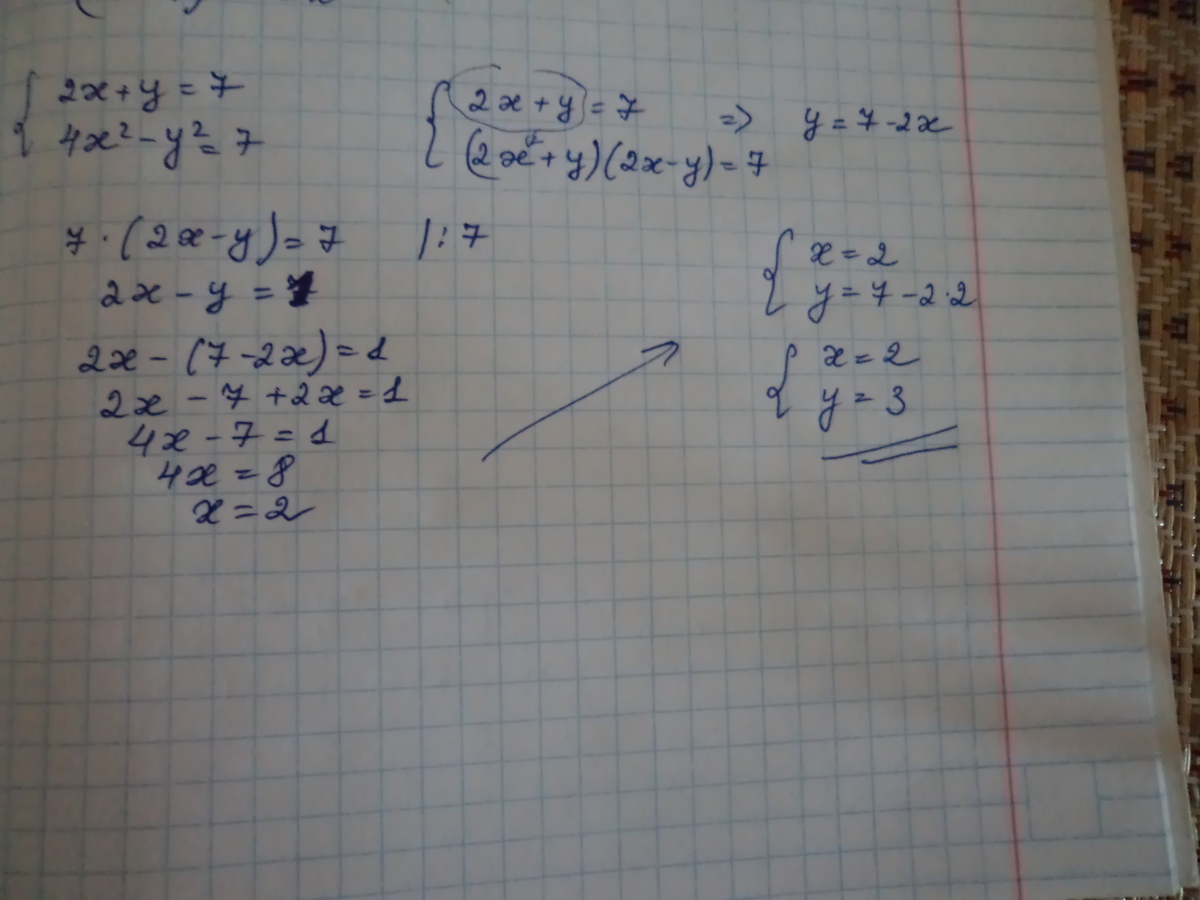 { 2x + y = 7
4x² - y² = 7
{ 2x + y = 7 => y = 7 - 2x
(2x² + y)(2x - y) = 7
7 · (2x - y) = 7 | : 7
2x - y = 1
2x - (7 - 2x) = 1
2x - 7 + 2x = 1
4x - 7 = 1
4x = 8
x = 2
{ x = 2
y = 7 - 2·2
{ x = 2
y = 3